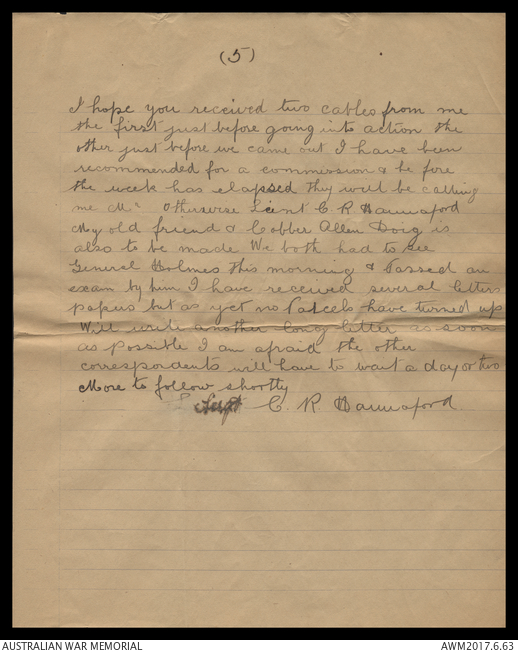 (5)
I hope you received two cables from me
the first just before going into action the
other just before we came out I have been
recommended for a commission & be fore
the week has elapsed they will be calling
me Mr Otherwise Lieut C. R Hannaford
My old friend & Cobber Allen Doig is
also to be made We both had to see
General Holmes this morning & Passed an
exam by him I have received several letters
papers but as yet no Parcels have turned up
Will write another long letter as soon
as possible I am afraid the other
correspondents will have to wait a day or two
More to follow shortly
Sergt C. R. Hannaford
AUSTRALIAN WAR MEMORIAL
AWM2017.6.63